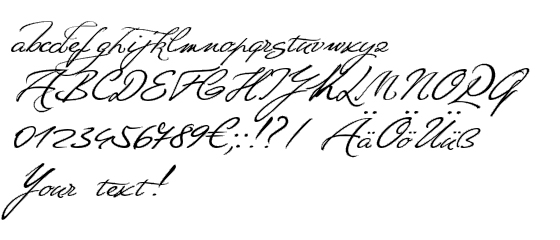 abcdefghijklmnopqrstuvwxyz
ABCDEFGHIJKLMNOPQ
0123456789€;:!?/ ÄäÖöÜüß
Your text!